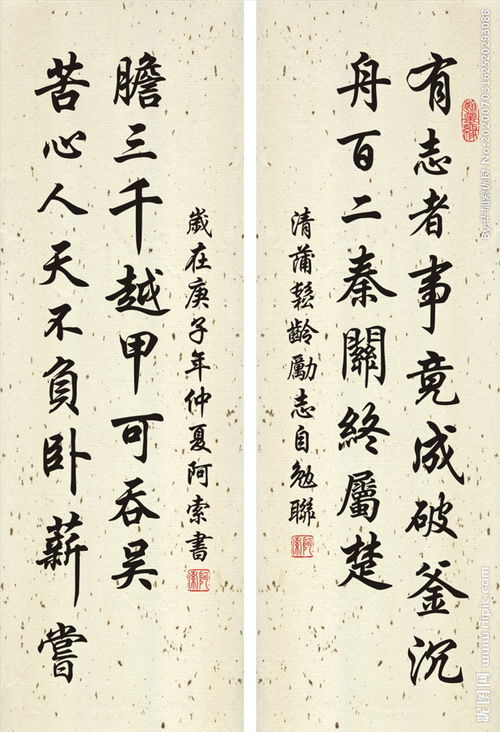 有志者事竟成破釜沉
舟百二秦關終屬楚
清蒲鬆齡勵志自勉聯
阿索
苦心人天不負卧薪嘗
膽三千越甲可吞吳
歲在庚子年仲夏阿索書
阿索
No:20200703162520293088
昵图网 www.nipic.com